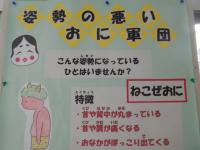 姿勢の悪い
おに軍団
こんな姿勢になっている
ひとはいませんか？
ねこぜおに
特徴
・首や背中が丸まっている
・首や肩が痛くなる
・おなかがぽっこり出てくる